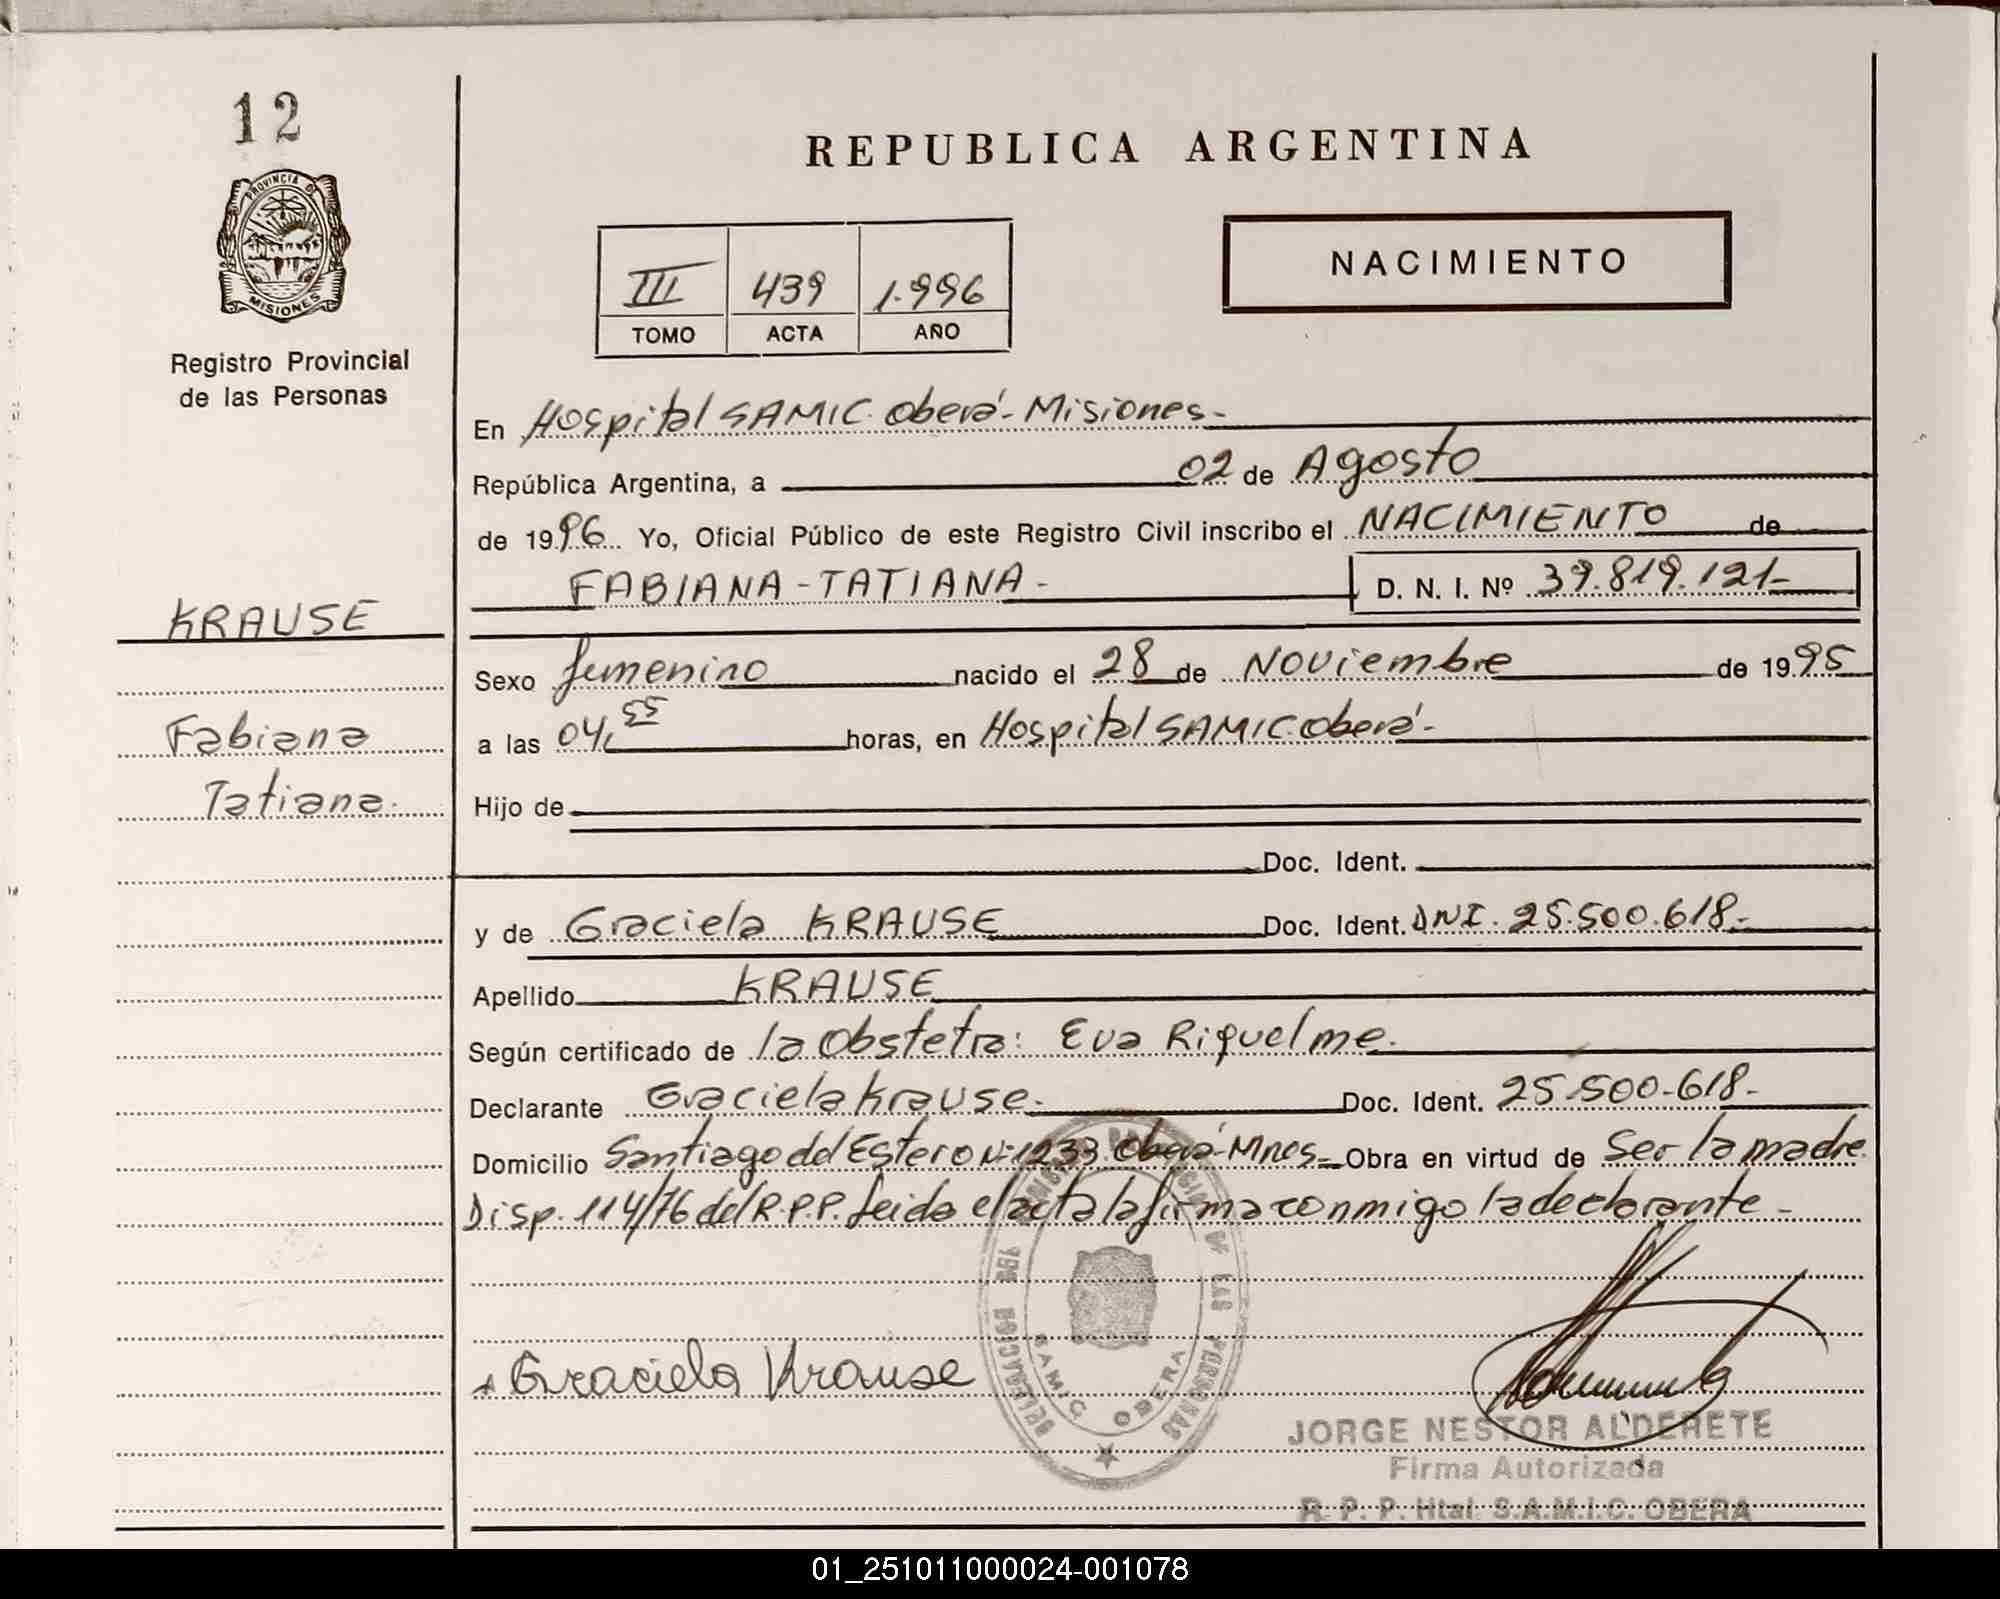 12
REPUBLICA ARGENTINA
PROVINCIA DE
MISIONES
Registro Provincial
de las Personas
NACIMIENTO
III 439 1.996
TOMO ACTA AÑO
En Hospital SAMIC. Oberá - Misiones -
República Argentina, a 02 de Agosto
de 1996 Yo, Oficial Público de este Registro Civil inscribo el NACIMIENTO de
FABIANA - TATIANA - D. N. I. Nº 39.819.121-
KRAUSE
Fabiana
Tatiana.
Sexo femenino nacido el 28 de Noviembre de 1995
a las 04,55 horas, en Hospital SAMIC. Oberá -
Hijo de
Doc. Ident.
y de Graciela KRAUSE Doc. Ident. DNI. 25.500.618.-
Apellido KRAUSE
Según certificado de la Obstetra: Eva Riquelme.
Declarante Graciela Krause. Doc. Ident. 25.500.618-
Domicilio Santiago del Estero Nº 1233 Oberá - Mnes - Obra en virtud de Ser la madre
Disp. 114/76 del R.P.P. Leida el acta la firma conmigo la declarante -
Graciela Krause
SAMIC OBERA
JORGE NESTOR ALDERETE
Firma Autorizada
R. P. P. Htal. S.A.M.I.C. OBERA
01_251011000024-001078